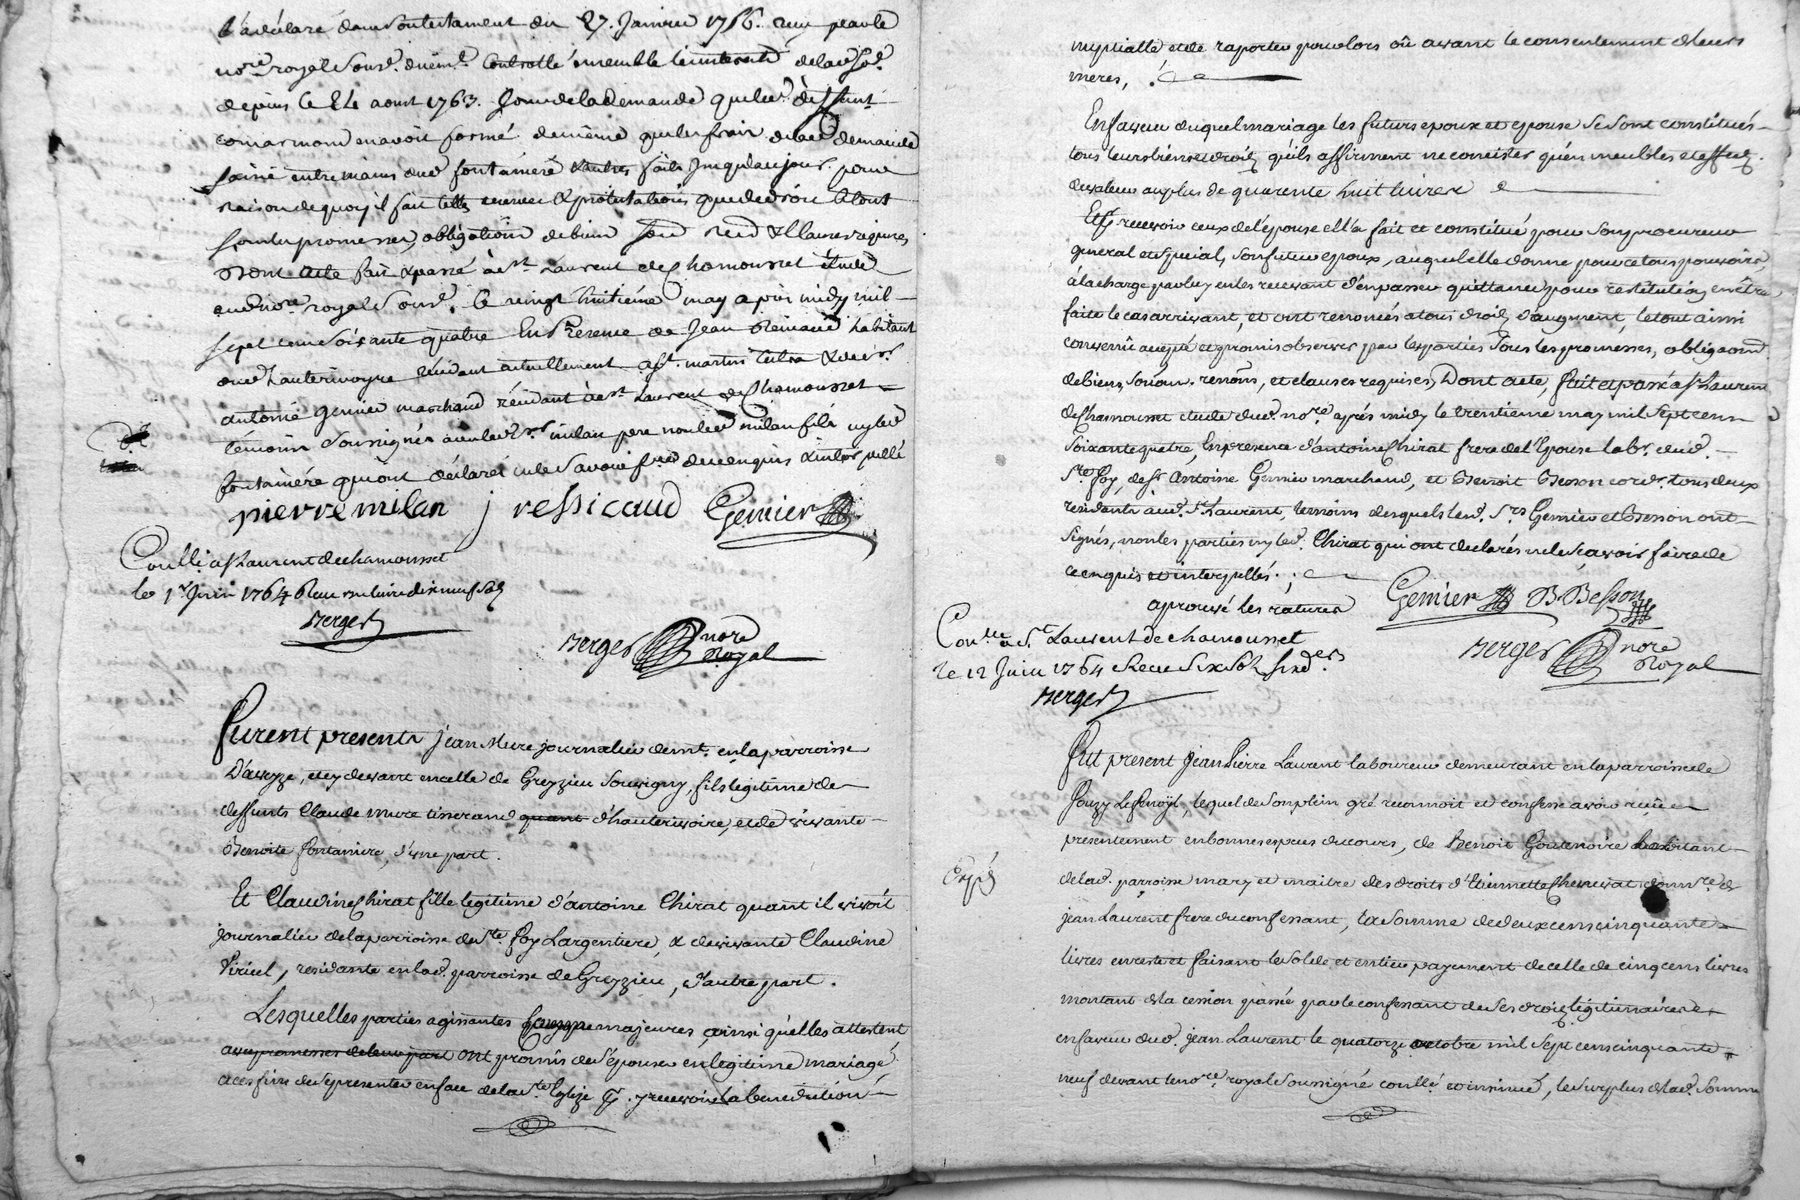 déclaré dans son testament du 27. Janvier 1756. reçu par le
no.re royal Sous.é düem.t Controllé ensemble les interests de lad. So.e
depuis le 24 aoust 1763. Jour de la demande que led. deffunt
en avoit formé de même que les frais de lad. demande
saisie entre mains dud. fontaniere & autres faits Jusqu'au jour. pour
raison de quoy il fait telles reserves & protestations que de droit le tout
sous les promesses, obligations de biens Soum. ren. & Clauses requises
Dont acte fait & passé à S.t Laurent de Chamousset étude
dud. no.re royal Sous.é Le vingt huitième may après midy mil
sept cens soixante quatre En Présence de Jean Renaud habitant
dud. hauterivoire résidant actuellement a S.t martin & de s.r
antoine genier marchand résidant à S.t Laurent de Chamousset
témoins Soussignés avec led. s.r milan père non led. milan fils ny led.
fontaniere qui ont déclaré ne le Savoir f.re de ce enquis & interpellé
pierre milan j ressicaud Genier
Con.llé a S.t Laurent de chamousset
le 1.r Juin 1764 Reçu dixneuf sols
Berger
Berger nore Royal
Furent presents jean Mure journalier dem.t en la parroisse
D'aveyze, et cy devant en celle de Greyzieu Souvigny, fils legitime de
deffunts Claude mure tisserand quant d'hauterivoire, et de vivante
Benoite fontaniere, d'une part.
Et Claudine Chirat fille legitime d'antoine Chirat quant il vivoit
journalier de la parroisse de S.te foy Largentiere, & de vivante Claudine
Viricel, residante en lad. parroisse de Greyzieu, d'autre part.
Lesquelles parties agissantes comme majeures, ainsi qu'elles attestent,
avec promesses de leur part ont promis de S'épouser en legitime mariage
a ces fins de Se presenter en face de la S.te Eglize p.r. y recevoir la benediction
nuptialle et de raporter pour lors où avant le consentement de leurs
meres,
En faveur duquel mariage les futurs epoux et epouse Se Sont constitués
tous leurs biens et droits qu'ils affirment ne consister qu'en meubles et effets
de valeur au plus de quarente huit livres
Et p.r recevoir ceux de l'épouse elle a fait et constitué pour Son procureur
general et Special, Son futur epoux, auquel elle donne pour ce tous pouvoirs,
à la charge par luy en les recevant d'en passer quittances pour restitution en être
faite le cas arrivant, et ont renoncés a tous droits d'augment, le tout ainsi
convenû accepté et promis observer par les parties Sous les promesses, obligaons
de biens, Soum. renons, et clauses requises, Dont acte, fait et passé a S.t Laurent
de Chamousset etude dud. no.re après midy le trentieme may mil Sept cens
Soixante quatre, En presence d'antoine Chirat frere de l'Epouse lab.r dud.
S.te foy, de S.r Antoine Genier marchand, et Benoit Besson cord.r tous deux
residants aud. S.t Laurent, temoins desquels led. S.rs Genier et Besson ont
Signés, non les parties ny led. Chirat qui ont declarés ne le Sçavoir faire de
ce enquis et interpellés.
aprouvé les ratures Genier B. Besson
Con.llé à S.t Laurent de chamousset
le 12 Juin 1764 Recu Six Sols Six d.ers
Berger
Berger nore Royal
Fut present Jean Pierre Laurent laboureur demeurant en la parroisse de
Souzy Largentiere, lequel de Son plein gré reconnoit et confesse avoir reçu
presentement en bonnes especes du cours, de Benoit Goutenoire habitant
Expé
de lad. parroisse mary et maitre des droits d'Etiennette
jean Laurent frere du confessant, la Somme de deux cens cinquante
livres en reste et faisant le Solde et entier payement de celle de cinq cens livres
montant de la cession passée par le confessant de Ses droits legitimaires
en faveur dud. jean Laurent le quatorze octobre mil Sept cens cinquante
neuf devant le no.re royal Soussigné con.llé et insinué, le Surplus de lad. Somme